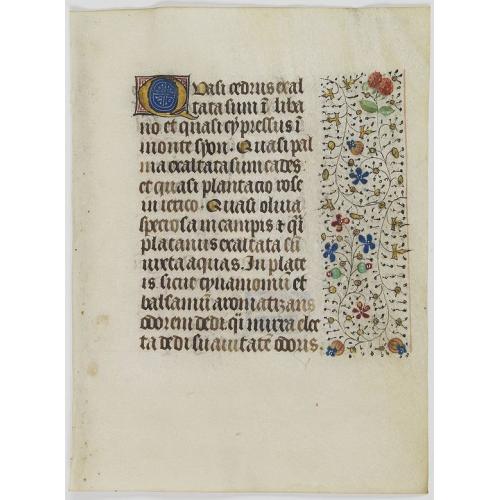 Quasi cedrus exal
tata sum ī liba
no et quasi cypressus ī
monte syon. Quasi pal
ma exaltata sum cades
et quasi plantacio rose
in ierico. Quasi oliua
speciosa in campis ⁊ q̄si
platanus exaltata sū
iuxta aquas. In plate
is sicut cynamomū et
balsamū aromatizans
odorem dedi. q̄si mirra elec
ta dedi suauitatē odoris.